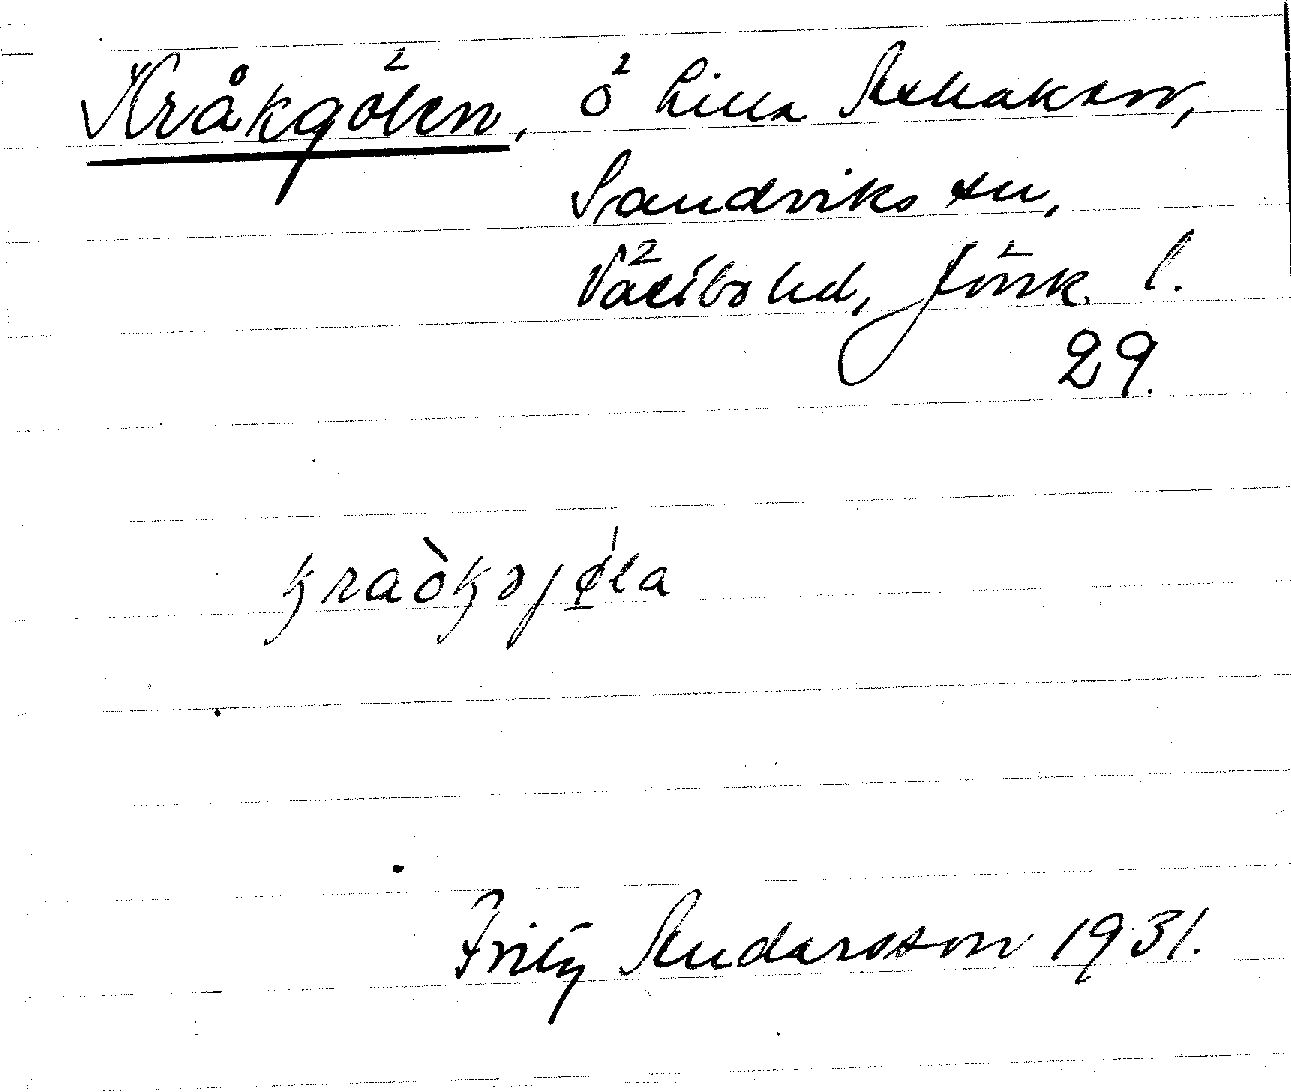 Kråkgölen, ö Lilla Askaken,
Sandviks sn,
Västbo hd, Jönk. l.
29.
kraòkəjǿla
Fritz Andersson 1931.